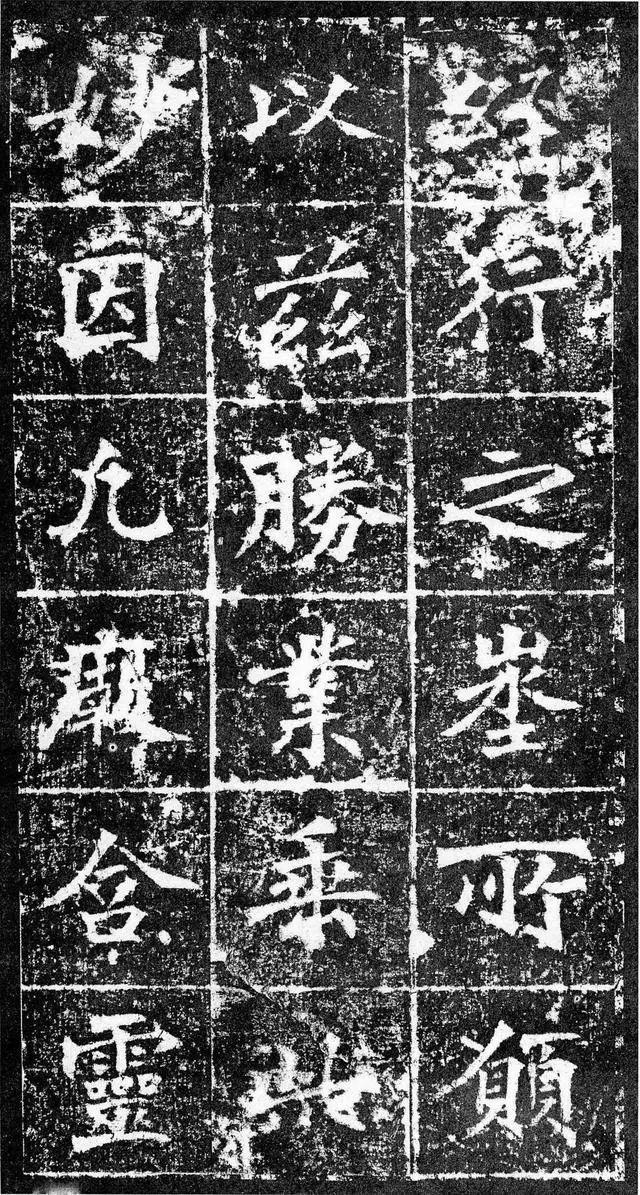 經行之坐所願
以茲勝業乘此
妙因凡厥含靈